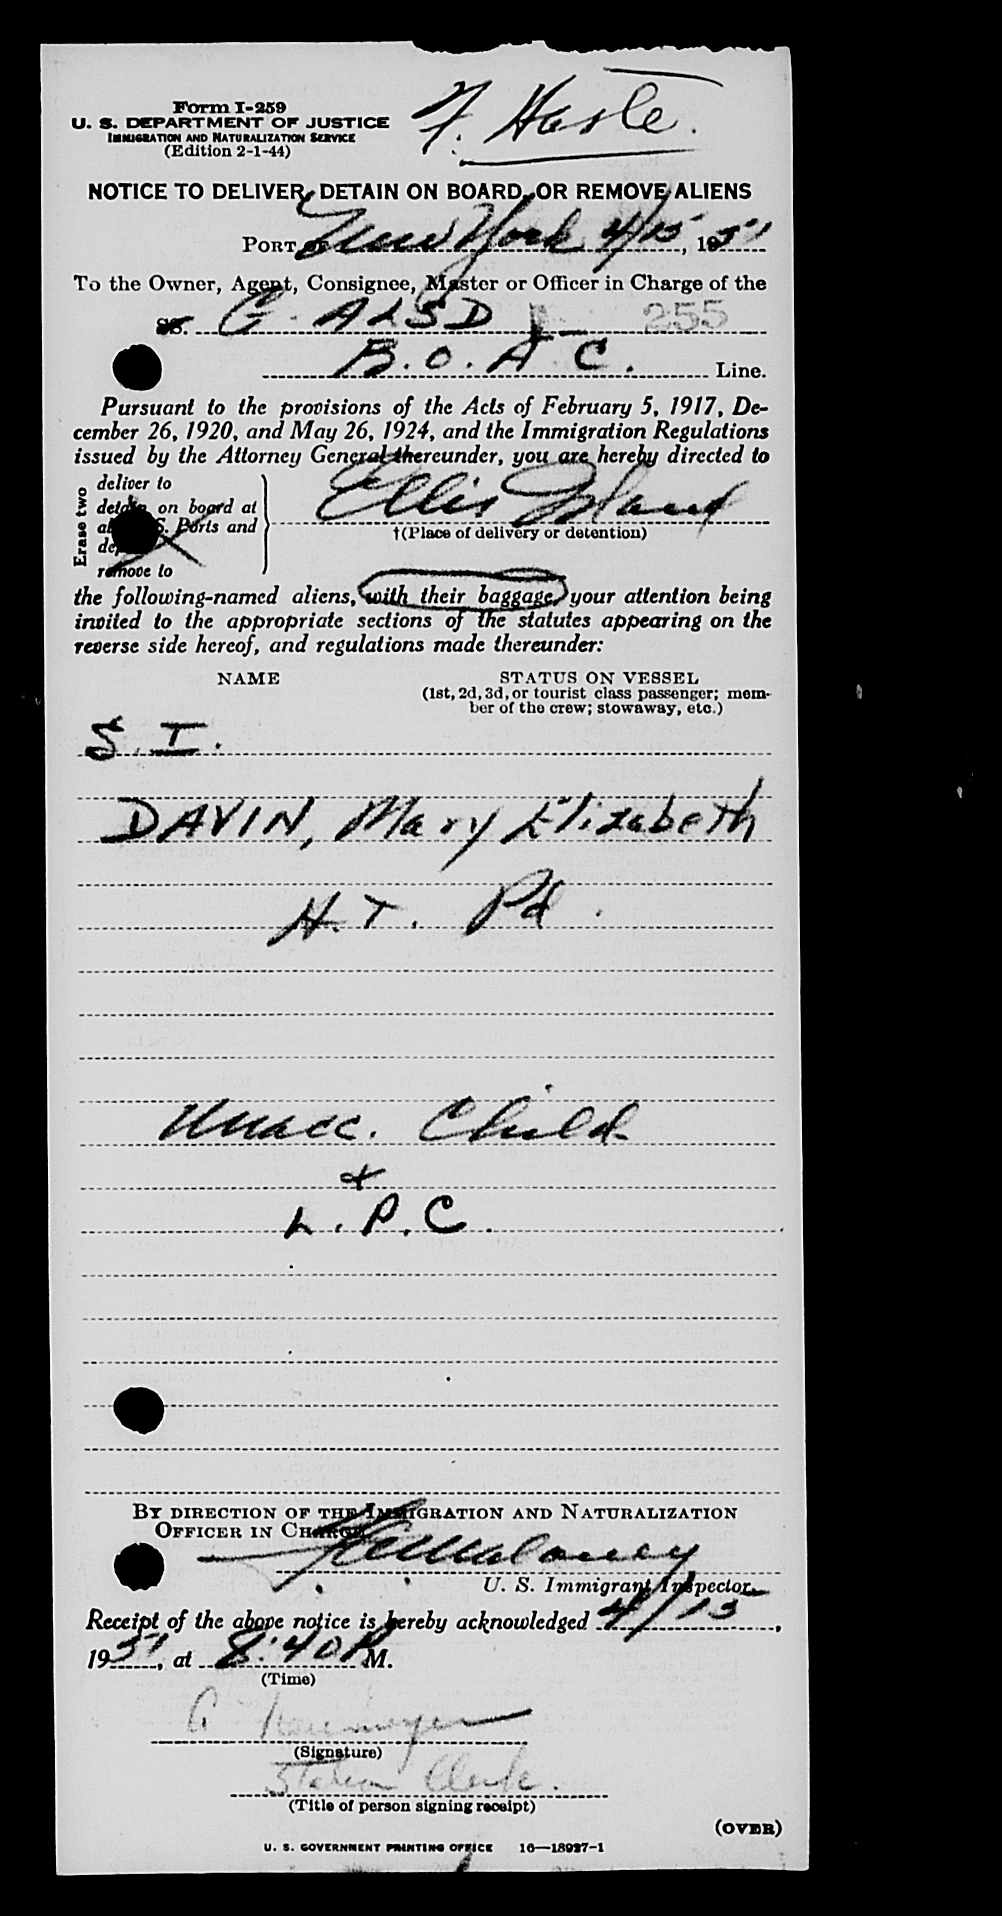 Form I-259
U. S. DEPARTMENT OF JUSTICE
IMMIGRATION AND NATURALIZATION SERVICE
(Edition 2-1-44)
NOTICE TO DELIVER, DETAIN ON BOARD, OR REMOVE ALIENS
PORT OF New York 4/15, 1951
To the Owner, Agent, Consignee, Master or Officer in Charge of the
SS. G. ALSD 255
B.O.A.C. Line.
Pursuant to the provisions of the Acts of February 5, 1917, De-
cember 26, 1920, and May 26, 1924, and the Immigration Regulations
issued by the Attorney General thereunder, you are hereby directed to
Erase two
deliver to
detain on board at
S. Ports and
remove to
Ellis Island
†(Place of delivery or detention)
the following-named aliens, with their baggage, your attention being
invited to the appropriate sections of the statutes appearing on the
reverse side hereof, and regulations made thereunder:
NAME
STATUS ON VESSEL
(1st, 2d, 3d, or tourist class passenger; mem-
ber of the crew; stowaway, etc.)
S.I.
DAVIN, Mary Elizabeth
H.T. Pd.
Unacc. Child
&
L.P.C.
BY DIRECTION OF THE IMMIGRATION AND NATURALIZATION
OFFICER IN CHARGE
Maloney
U. S. Immigrant Inspector.
Receipt of the above notice is hereby acknowledged 4/15,
1951, at 8:40 P M.
(Time)
(Signature)
Station Clerk.
(Title of person signing receipt)
(OVER)
U. S. GOVERNMENT PRINTING OFFICE 16—18927-1